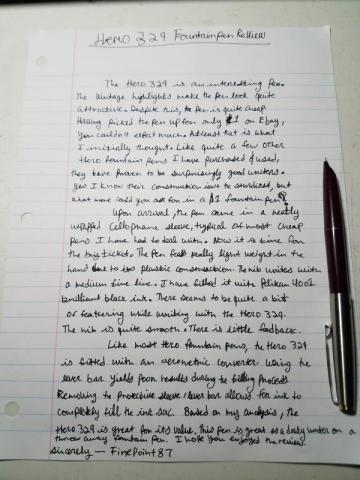 Hero 329 Fountain Pen Review
The Hero 329 is an interesting Pen.
The Vintage highlights make the Pen look quite
attractive. Despite this, the Pen is quite cheap
Having picked the Pen up for only $1 on Ebay,
you couldn't expect much. Atleast that is what
I initially thought. Like quite a few other
Hero fountain pens I have purchased & used,
they have proven to be surprisingly good writers.
Yes I know their construction isn't the sturdiest, but
what more could you ask for in a $1 fountain pen?
Upon arrival, the pen came in a neatly
wrapped Cellophane sleeve, typical of most cheap
pens I have had to deal with. Now it is time for
the big ticket. The Pen feels really light weight in the
hand due to its plastic construction. The nib writes with
a medium fine line. I have filled it with Pelikan 4001
brilliant black ink. There seems to be quite a bit
of feathering while writing with the Hero 329.
The nib is quite smooth. There is little feedback.
Like most Hero fountain pens, the Hero 329
is fitted with an aerometric converter. Using the
lever bar yields poor results during the filling process
Removing the protective sleeve/lever bar allows for ink to
completely fill the ink sac. Based on my analysis, the
Hero 329 is great for its value, this pen is great as a daily writer or a
throw away fountain pen. I hope you enjoyed the review.
Sincerely — FinePoint87